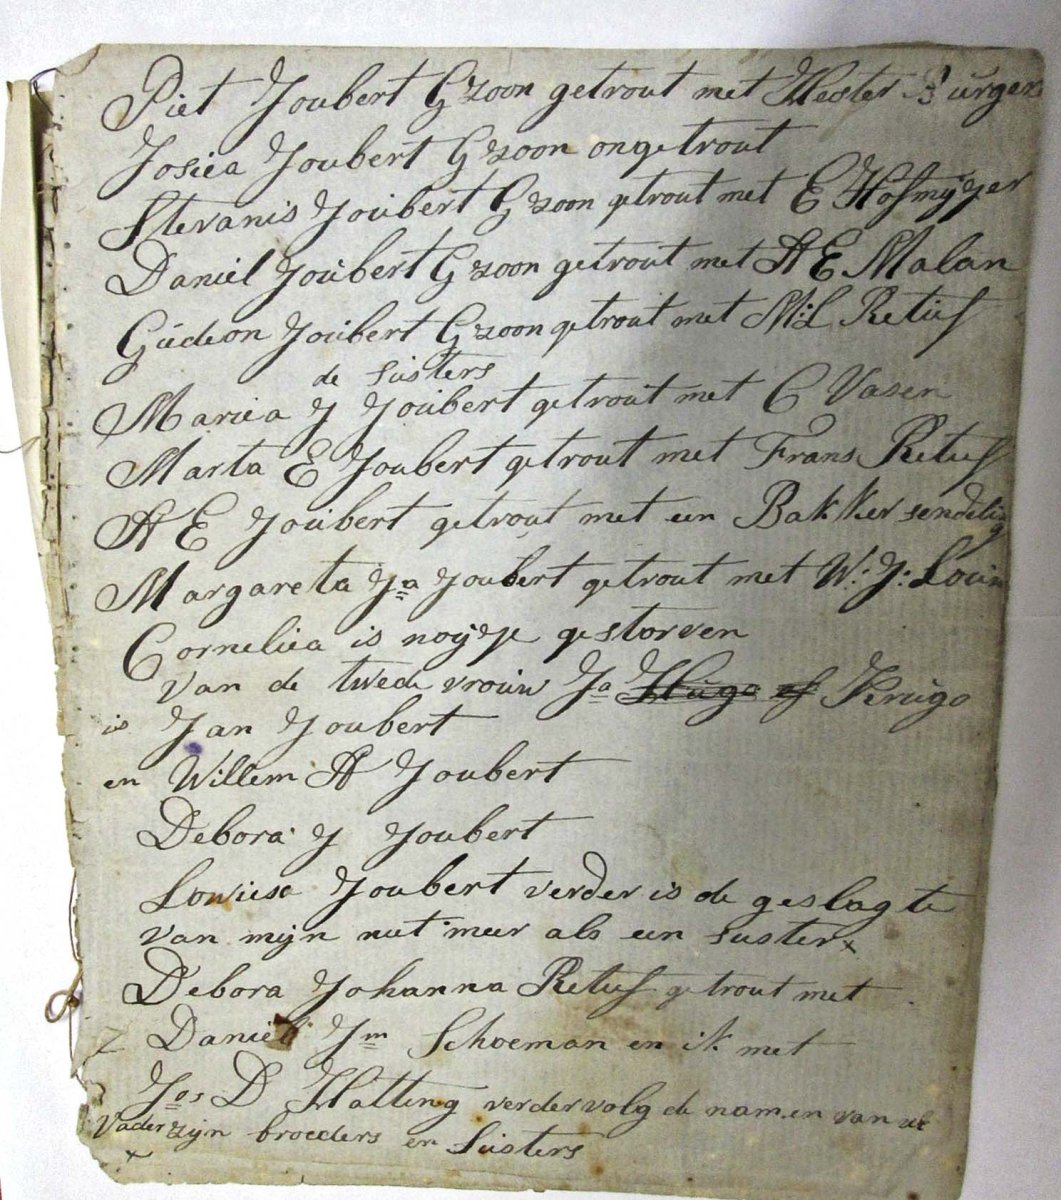 Piet Joubert G zoon getrout met Hester Burger
Josiea Joubert G zoon ongetrout
Stevanis Joubert G zoon getrout met E Hofmijzer
Daniel Joubert G zoon getrout met A E Malan
Gideon Joubert G zoon getrout met M: L Retief
de susters
Mariea J Joubert getrout met C Vasen
Marta E Joubert getrout met Frans Retief
A E Joubert getrout met een Bakker sendeling
Margareta Ja Joubert getrout met W: J: Louw
Corneliea is gestorven
van de twede vrouw Ja Hugo of Krugo
is Jan Joubert
en Willem A Joubert
Debora J Joubert
Lowiese Joubert verder is de geslagte
van mijn niet meer als een suster x
Debora Johanna Retief getrout met
Daniel Jm Schoeman en ik met
Jos D Hatting verder volg de namen van
Vader zijn broeders en Susters
x